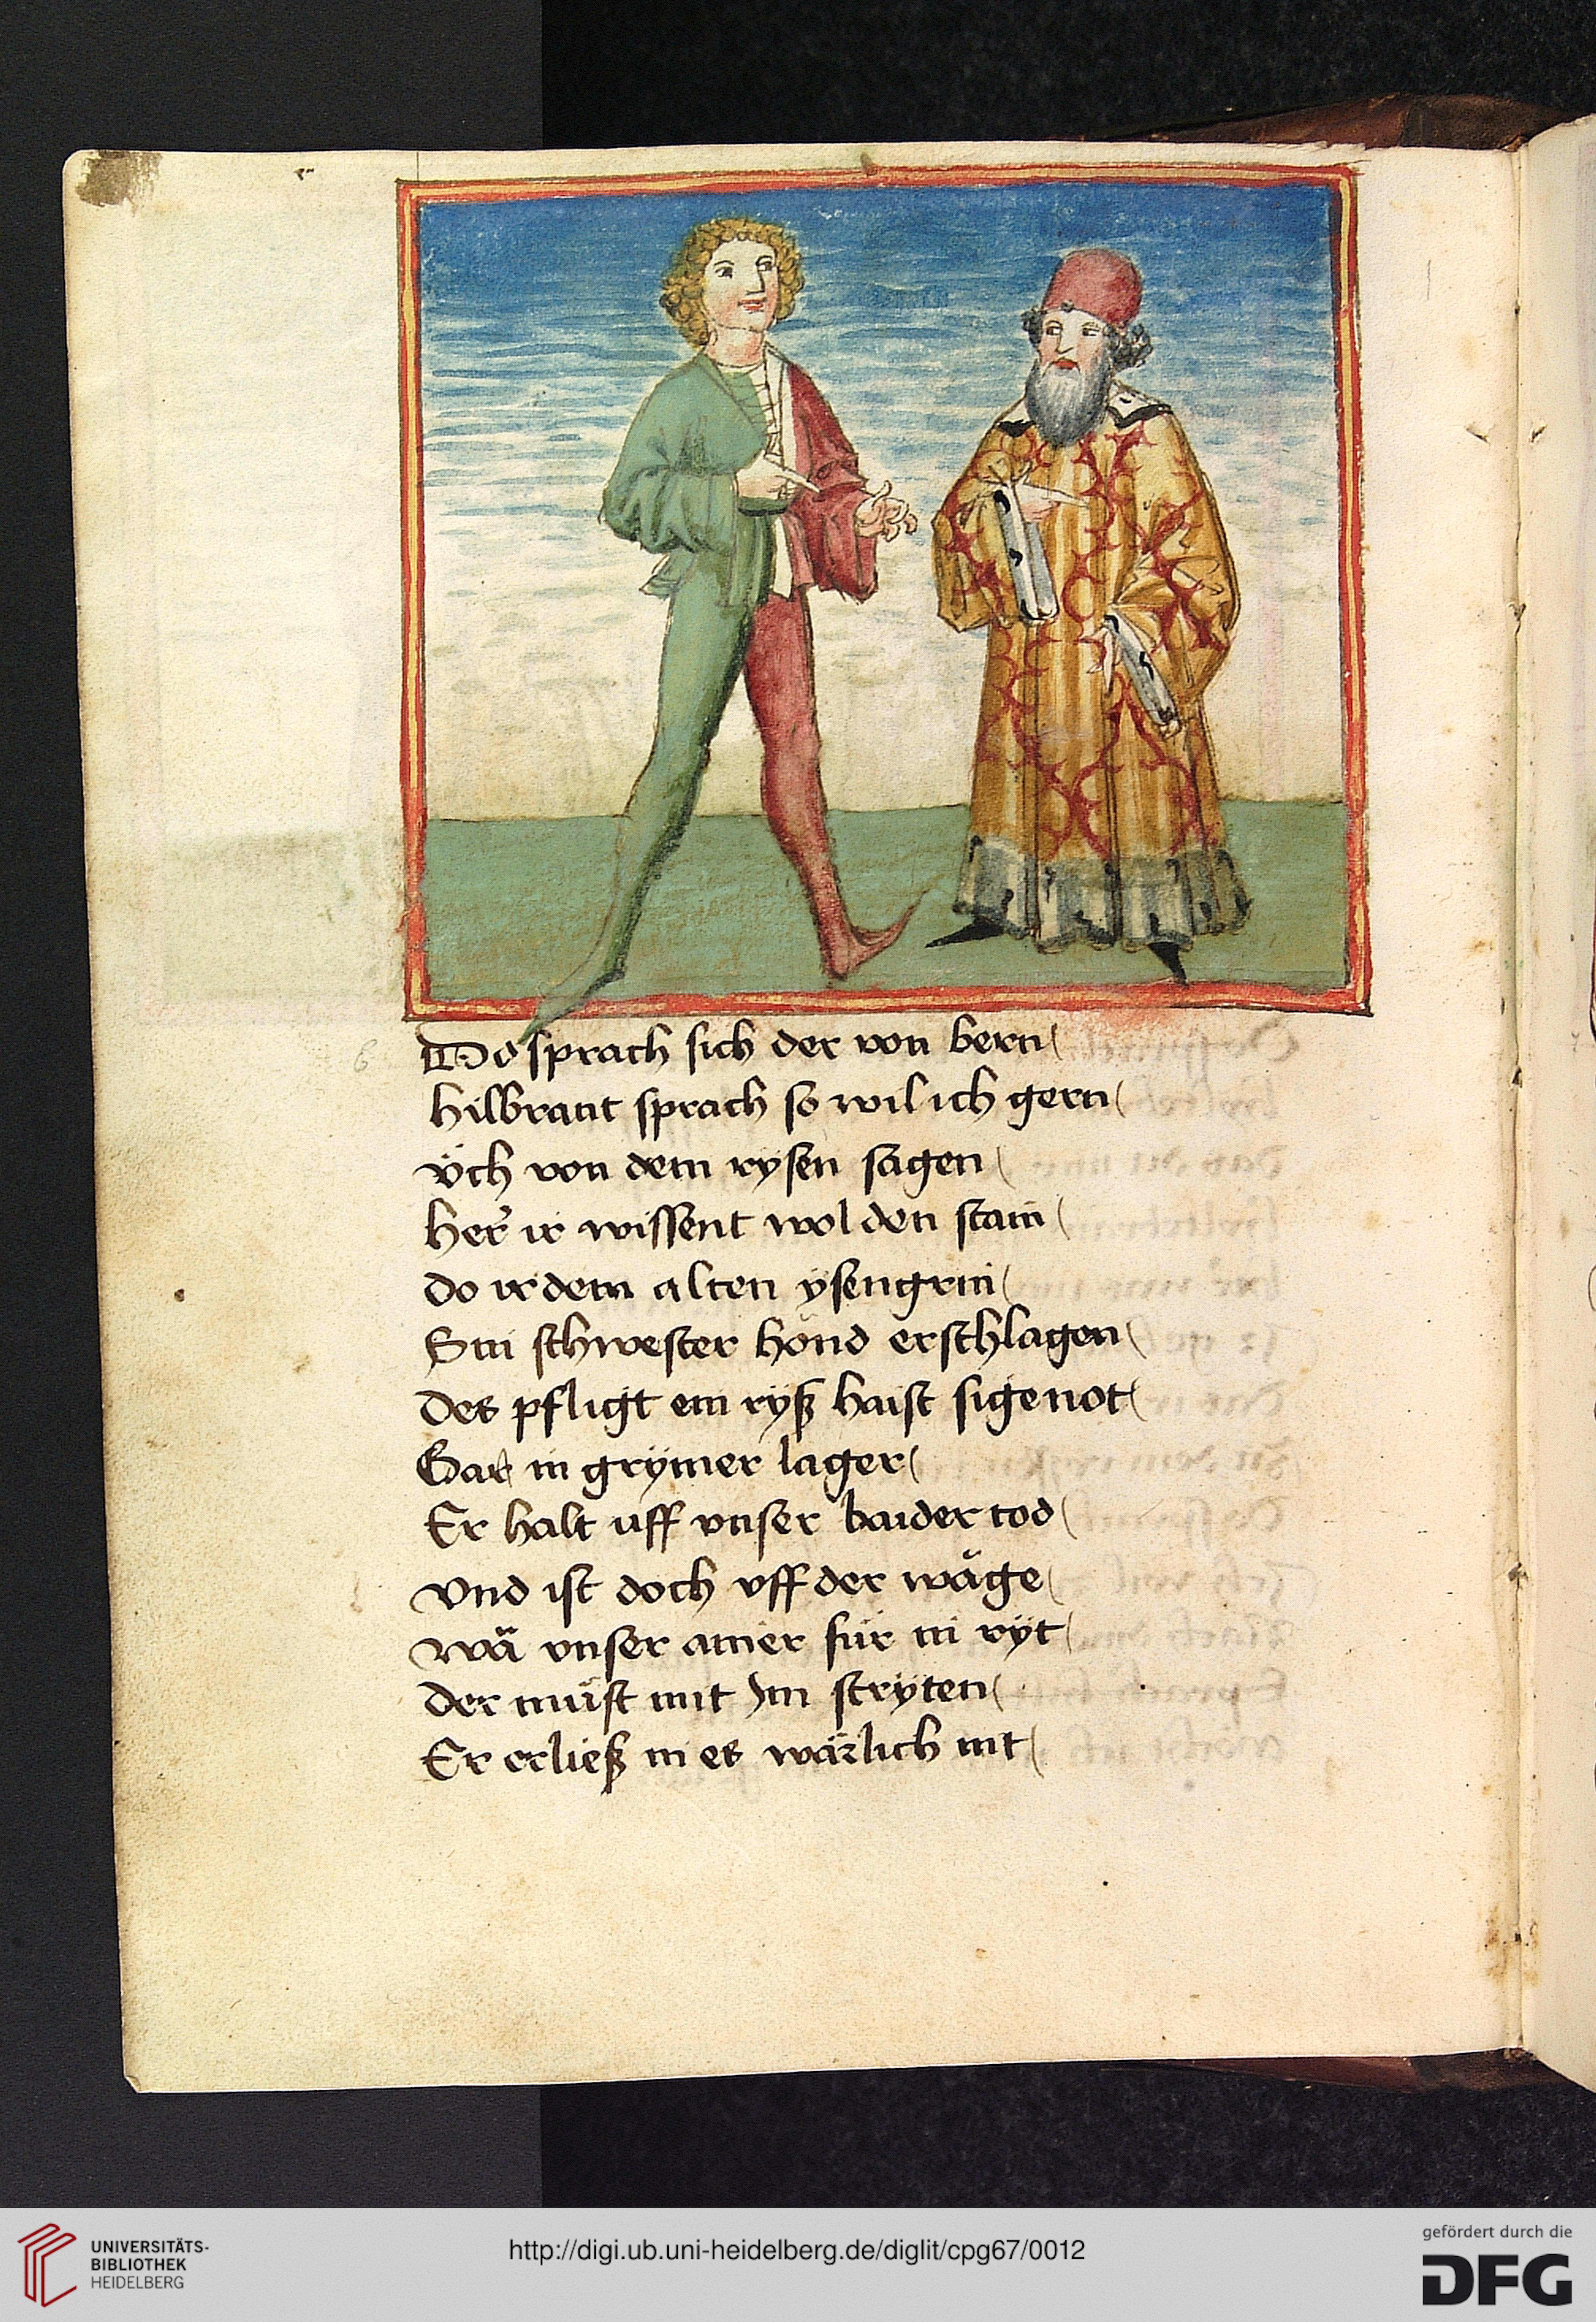 Do sprach sich der von bern
hilbrant sprach so wil ich gern
v̈ch von dem rysen sagen
her ir wissent wol den stain
do ir dem alten ysengrin
Sin schwester hond erschlagen
des pfligt ein ryß haist sigenot
Gar in grymer lager
Er halt uff vnser baider tod
vnd ist doch vff der wäge
wä vnser ainer für in ryt
der müst mit Im stryten
Er erließ in es wärlich nit
6
UNIVERSITÄTS-
BIBLIOTHEK
HEIDELBERG
http://digi.ub.uni-heidelberg.de/diglit/cpg67/0012
gefördert durch die
DFG